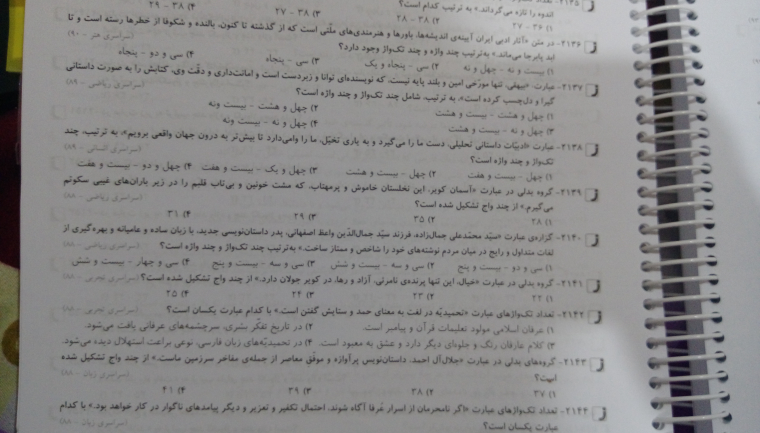 ۲۱۳۵- تعداد
اندوه را تازه می‌گرداند.» به ترتیب کدام است؟
۱) ۳۶ - ۲۷ ۲) ۳۸ - ۲۸ ۳) ۳۸ - ۲۷ ۴) ۳۸ - ۲۹
۲۱۳۶- در متن «آثار ادبی ایران آیینه‌ی اندیشه‌ها، باورها و هنرمندی‌های ملّتی است که از گذشته تا کنون، بالنده و شکوفا از خطرها رسته است و تا
ابد پابرجا می‌ماند.» به‌ترتیب چند واژه و چند تک‌واژ وجود دارد؟ (سراسری هنر - ۹۰)
۱) بیست و نه - چهل و نه ۲) سی - پنجاه و یک ۳) سی - پنجاه ۴) سی و دو - پنجاه
۲۱۳۷- عبارت «بیهقی، تنها مورّخی امین و بلند پایه نیست، که نویسنده‌ای توانا و زبردست است و امانت‌داری و دقّت وی، کتابش را به صورت داستانی
گیرا و دل‌چسب کرده است»، به ترتیب، شامل چند تک‌واژ و چند واژه است؟ (سراسری ریاضی - ۸۹)
۱) چهل و هشت - بیست و هشت ۲) چهل و هشت - بیست ونه
۳) چهل و نه - بیست و هشت ۴) چهل و نه - بیست ونه
۲۱۳۸- عبارت «ادبیّات داستانی تحلیلی، دست ما را می‌گیرد و به یاری تخیّل، ما را وامی‌دارد تا بیش‌تر به درون جهان واقعی برویم»، به ترتیب، چند
تک‌واژ و چند واژه است؟ (سراسری انسانی - ۸۹)
۱) چهل - بیست و هفت ۲) چهل - بیست و هشت ۳) چهل و یک - بیست و هفت ۴) چهل و دو - بیست و هفت
۲۱۳۹- گروه بدلی در عبارت «آسمان کویر، این نخلستان خاموش و پرمهتاب، که مشت خونین و بی‌تاب قلبم را در زیر باران‌های غیبی سکوتم
می‌گیرم.» از چند واج تشکیل شده است؟ (سراسری ریاضی - ۸۸)
۱) ۲۸ ۲) ۳۵ ۳) ۲۹ ۴) ۳۱
۲۱۴۰- گزاره‌ی عبارت «سیّد محمدعلی جمال‌زاده، فرزند سیّد جمال‌الدّین واعظ اصفهانی، پدر داستان‌نویسی جدید، با زبان ساده و عامیانه و بهره‌گیری از
لغات متداول و رایج در میان مردم نوشته‌های خود را شاخص و ممتاز ساخت.» به‌ترتیب چند تک‌واژ و چند واژه است؟ (سراسری ریاضی - ۸۸)
۱) سی و دو - بیست و پنج ۲) سی و سه - بیست و شش ۳) سی و سه - بیست و پنج ۴) سی و چهار - بیست و شش
۲۱۴۱- گروه بدلی در عبارت «خیال، این تنها پرنده‌ی نامرئی، آزاد و رها، در کویر جولان دارد.» از چند واج تشکیل شده است؟ (سراسری تجربی - ۸۸)
۱) ۲۲ ۲) ۲۳ ۳) ۲۴ ۴) ۲۵
۲۱۴۲- تعداد تک‌واژهای عبارت «تحمیدیّه در لغت به معنای حمد و ستایش گفتن است.» با کدام عبارت یکسان است؟ (سراسری تجربی - ۸۸)
۱) عرفان اسلامی مولود تعلیمات قرآن و پیامبر است. ۲) در تاریخ تفکّر بشری، سرچشمه‌های عرفانی یافت می‌شود.
۳) کلام عارفان رنگ و جلوه‌ای دیگر دارد و عشق به معبود است. ۴) در تحمیدیّه‌های زبان فارسی، نوعی براعت استهلال دیده می‌شود.
۲۱۴۳- گروه‌های بدلی در عبارت «جلال‌آل احمد، داستان‌نویس پرآوازه و موفّق معاصر از جمله‌ی مفاخر سرزمین ماست.» از چند واج تشکیل شده
است؟ (سراسری زبان - ۸۸)
۱) ۳۷ ۲) ۳۸ ۳) ۳۹ ۴) ۴۱
۲۱۴۴- تعداد تک‌واژهای عبارت «اگر نامحرمان از اسرار عُرفا آگاه شوند، احتمال تکفیر و تعزیر و دیگر پیامدهای ناگوار در کار خواهد بود.» با کدام
عبارت یکسان است؟ (سراسری زبان - ۸۸)